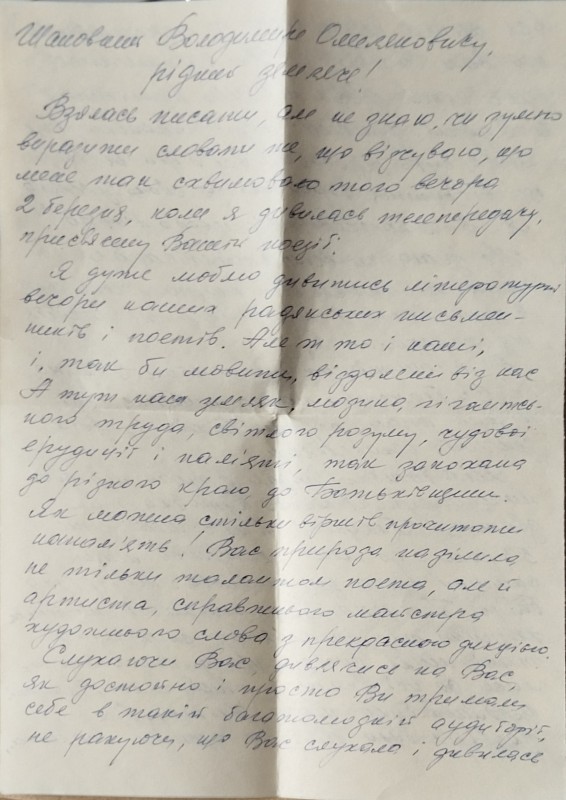 Шановний Володимире Омеляновичу,
рідний земляче!
Взялась писати, але не знаю, чи зумію
виразити словами те, що відчуваю, що
мене так схвилювало того вечора
2 березня, коли я дивилась телепередачу,
присвячену Вашій поезії.
Я дуже люблю дивитись літературні
вечори наших радянських письмен-
ників і поетів. Але ж то і наші,
і, так би мовити, віддалені від нас
А тут наш земляк, людина гігантсь-
кого труда, світлого розуму, чудової
ерудиції і пам'яті, так закохана
до рідного краю, до Батьківщини.
Як можна стільки віршів прочитати
напам'ять! Вас природа наділила
не тільки талантом поета, але й
артиста, справжнього майстра
художнього слова з прекрасною дикцією.
Слухаючи Вас, дивлячись на Вас,
як достойно і просто Ви тримали
себе в такій багатолюдній аудиторії,
не рахуючи, що Вас слухала і дивилась